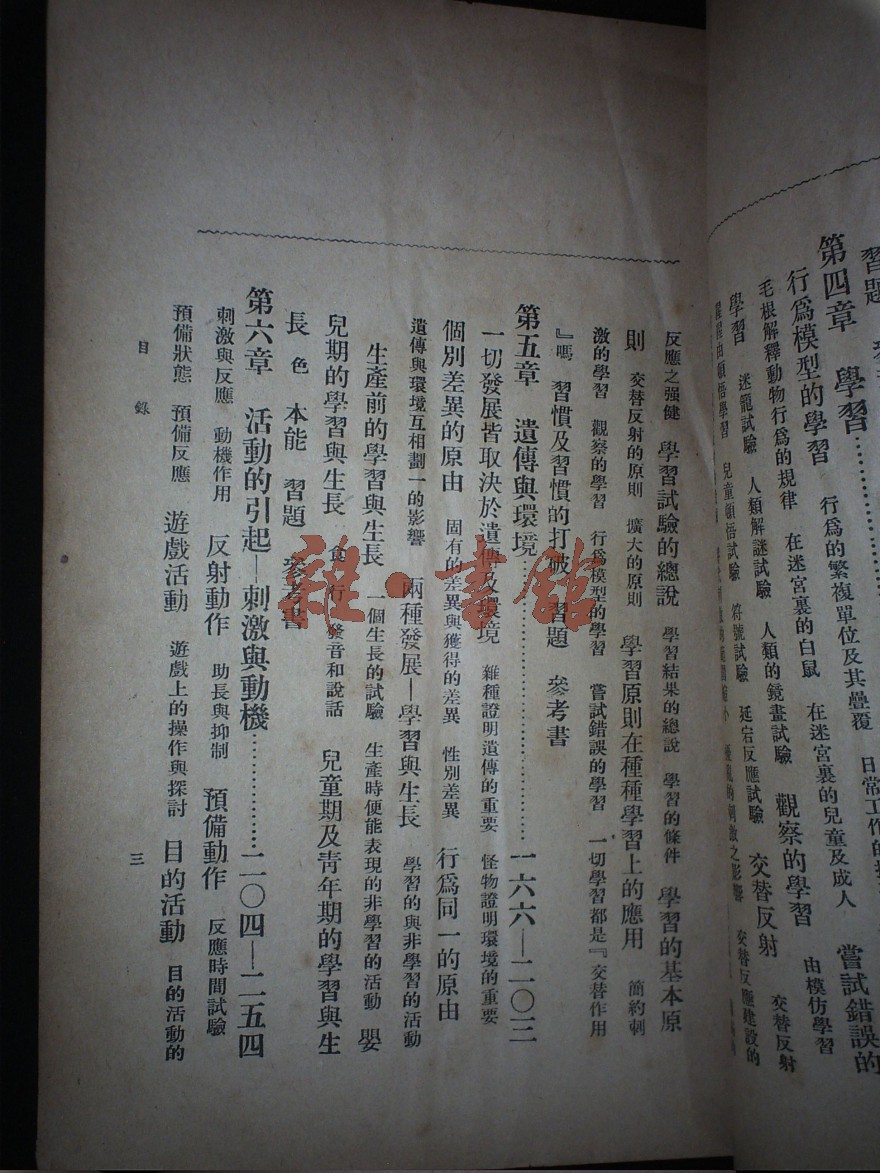 習題
第四章 學習…………
行爲模型的學習 行爲的繁複單位及其疊覆 日常工作的 嘗試錯誤的
毛根解釋動物行爲的規律 在迷宮裏的白鼠 在迷宮裏的兒童及成人 由模仿學習
學習 迷籠試驗 人類解謎試驗 人類的鏡畫試驗 觀察的學習 交替反射
由頓悟學習 兒童頓悟試驗 符號試驗 延宕反應試驗 交替反射 交替反應建設的
反應之强健 學習試驗的總說 學習結果的總說 學習的條件 學習的基本原
則 交替反射的原則 擴大的原則 學習原則在種種學習上的應用 簡約刺
激的學習 觀察的學習 行爲模型的學習 嘗試錯誤的學習 一切學習都是『交替作用
』嗎 習慣及習慣的打破 習題 參考書
第五章 遺傳與環境…………一六六—二〇三
一切發展皆取決於遺傳及環境 雜種證明遺傳的重要 怪物證明環境的重要
個別差異的原由 固有的差異與獲得的差異 性別差異 行爲同一的原由
遺傳與環境互相劃一的影響 兩種發展—學習與生長 學習的與非學習的活動
生產前的學習與生長 一個生長的試驗 生產時便能表現的非學習的活動 嬰
兒期的學習與生長 食 行 發音和說話 兒童期及靑年期的學習與生
長 色 本能 習題 參考書
第六章 活動的引起—刺激與動機…………二〇四—二五四
刺激與反應 動機作用 反射動作 助長與抑制 預備動作 反應時間試驗
預備狀態 預備反應 遊戲活動 遊戲上的操作與探討 目的活動 目的活動的
目錄
三
雜·書館